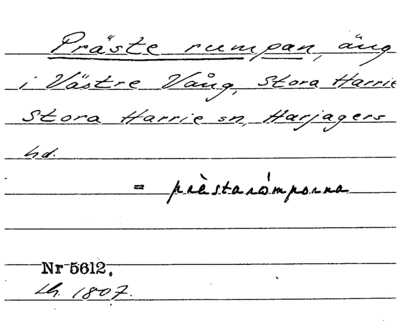 Präste rumpan, äng
i Västre Vång, Stora Harrie
Stora Harrie sn, Harjagers
hd.
= prèstarómporna
Nr 5612.
Lh. 1807.